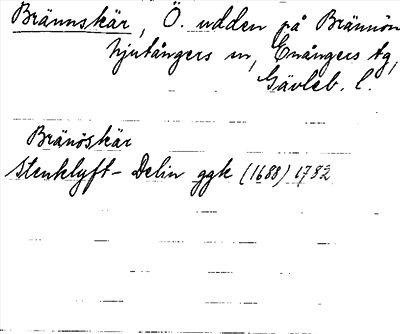 Brännskär, Ö. udden på Brännön
Njutångers sn, Enångers tg,
Gävleb. l.
Bränöskär
Stenklyft-Delin ggk (1688) 1782